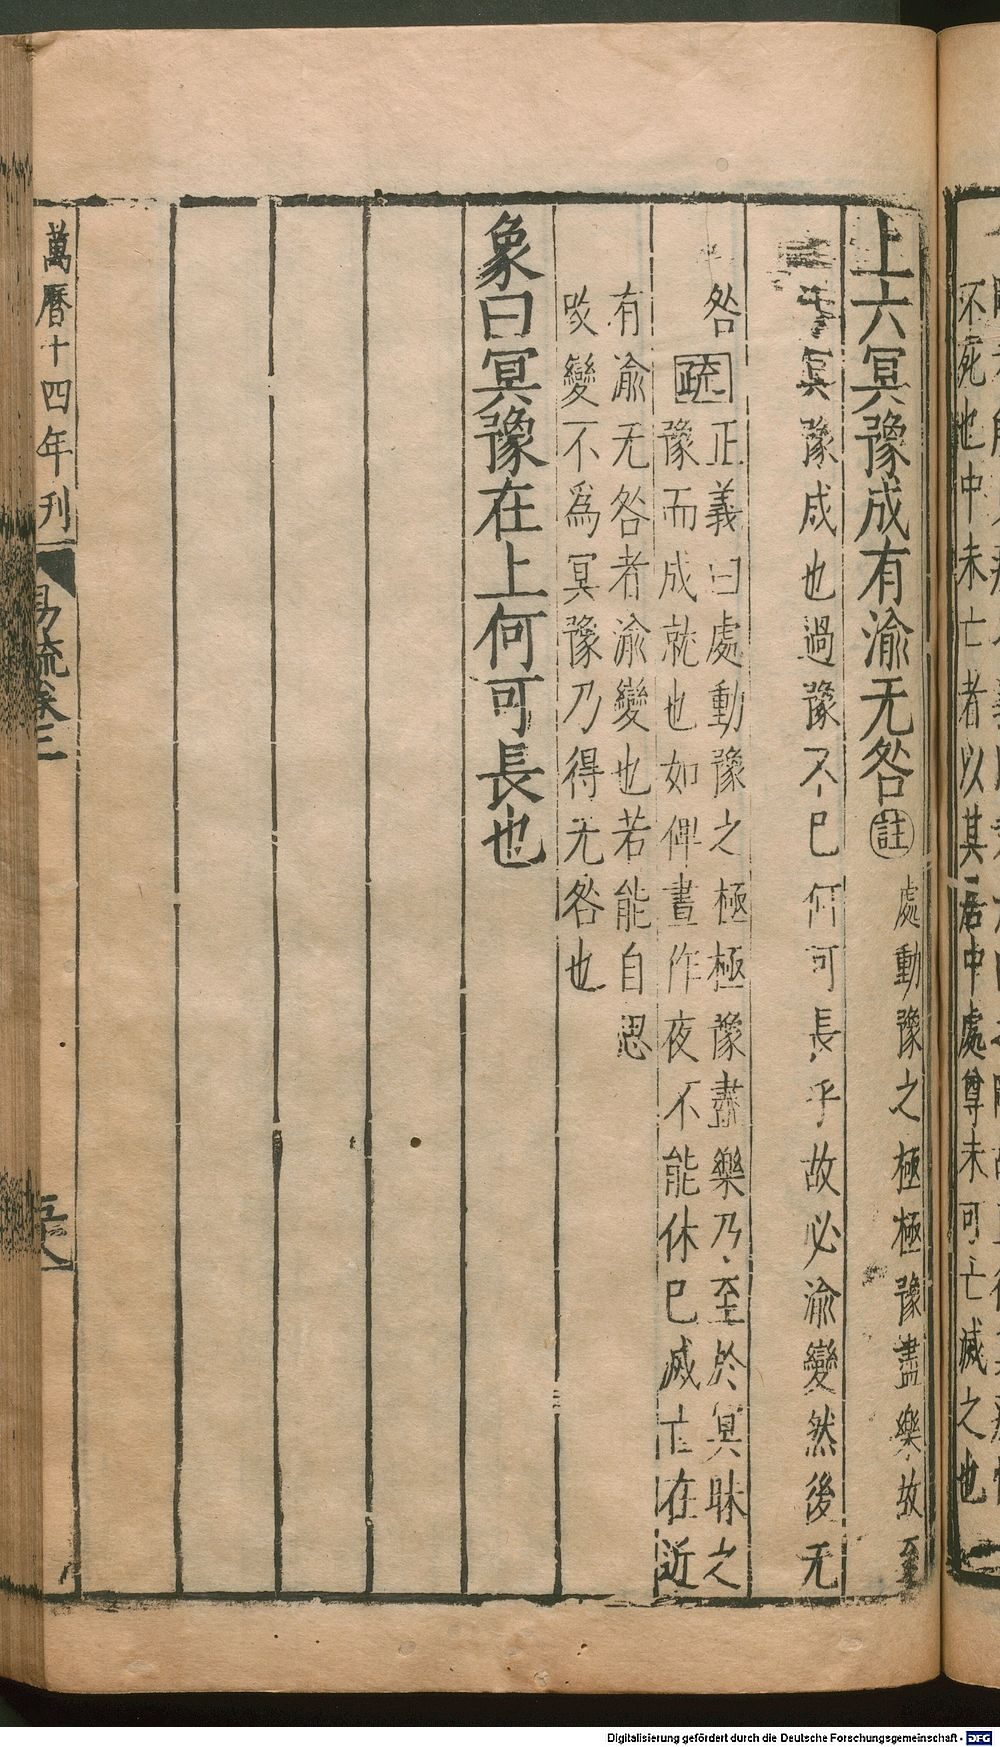 上六冥豫成有渝无咎註處動豫之極極豫盡樂故至
于冥豫成也過豫不已何可長乎故必渝變然後无
咎
疏正義曰處動豫之極極豫盡樂乃至於冥昧之
豫而成就也如俾晝作夜不能休已滅亡在近
有渝无咎者渝變也若能自思
改變不爲冥豫乃得无咎也
象曰冥豫在上何可長也
萬曆十四年刊
易疏卷三
不死也中未亡者以其居中處尊未可亡滅之也
Digitalisierung gefördert durch die Deutsche Forschungsgemeinschaft - DFG